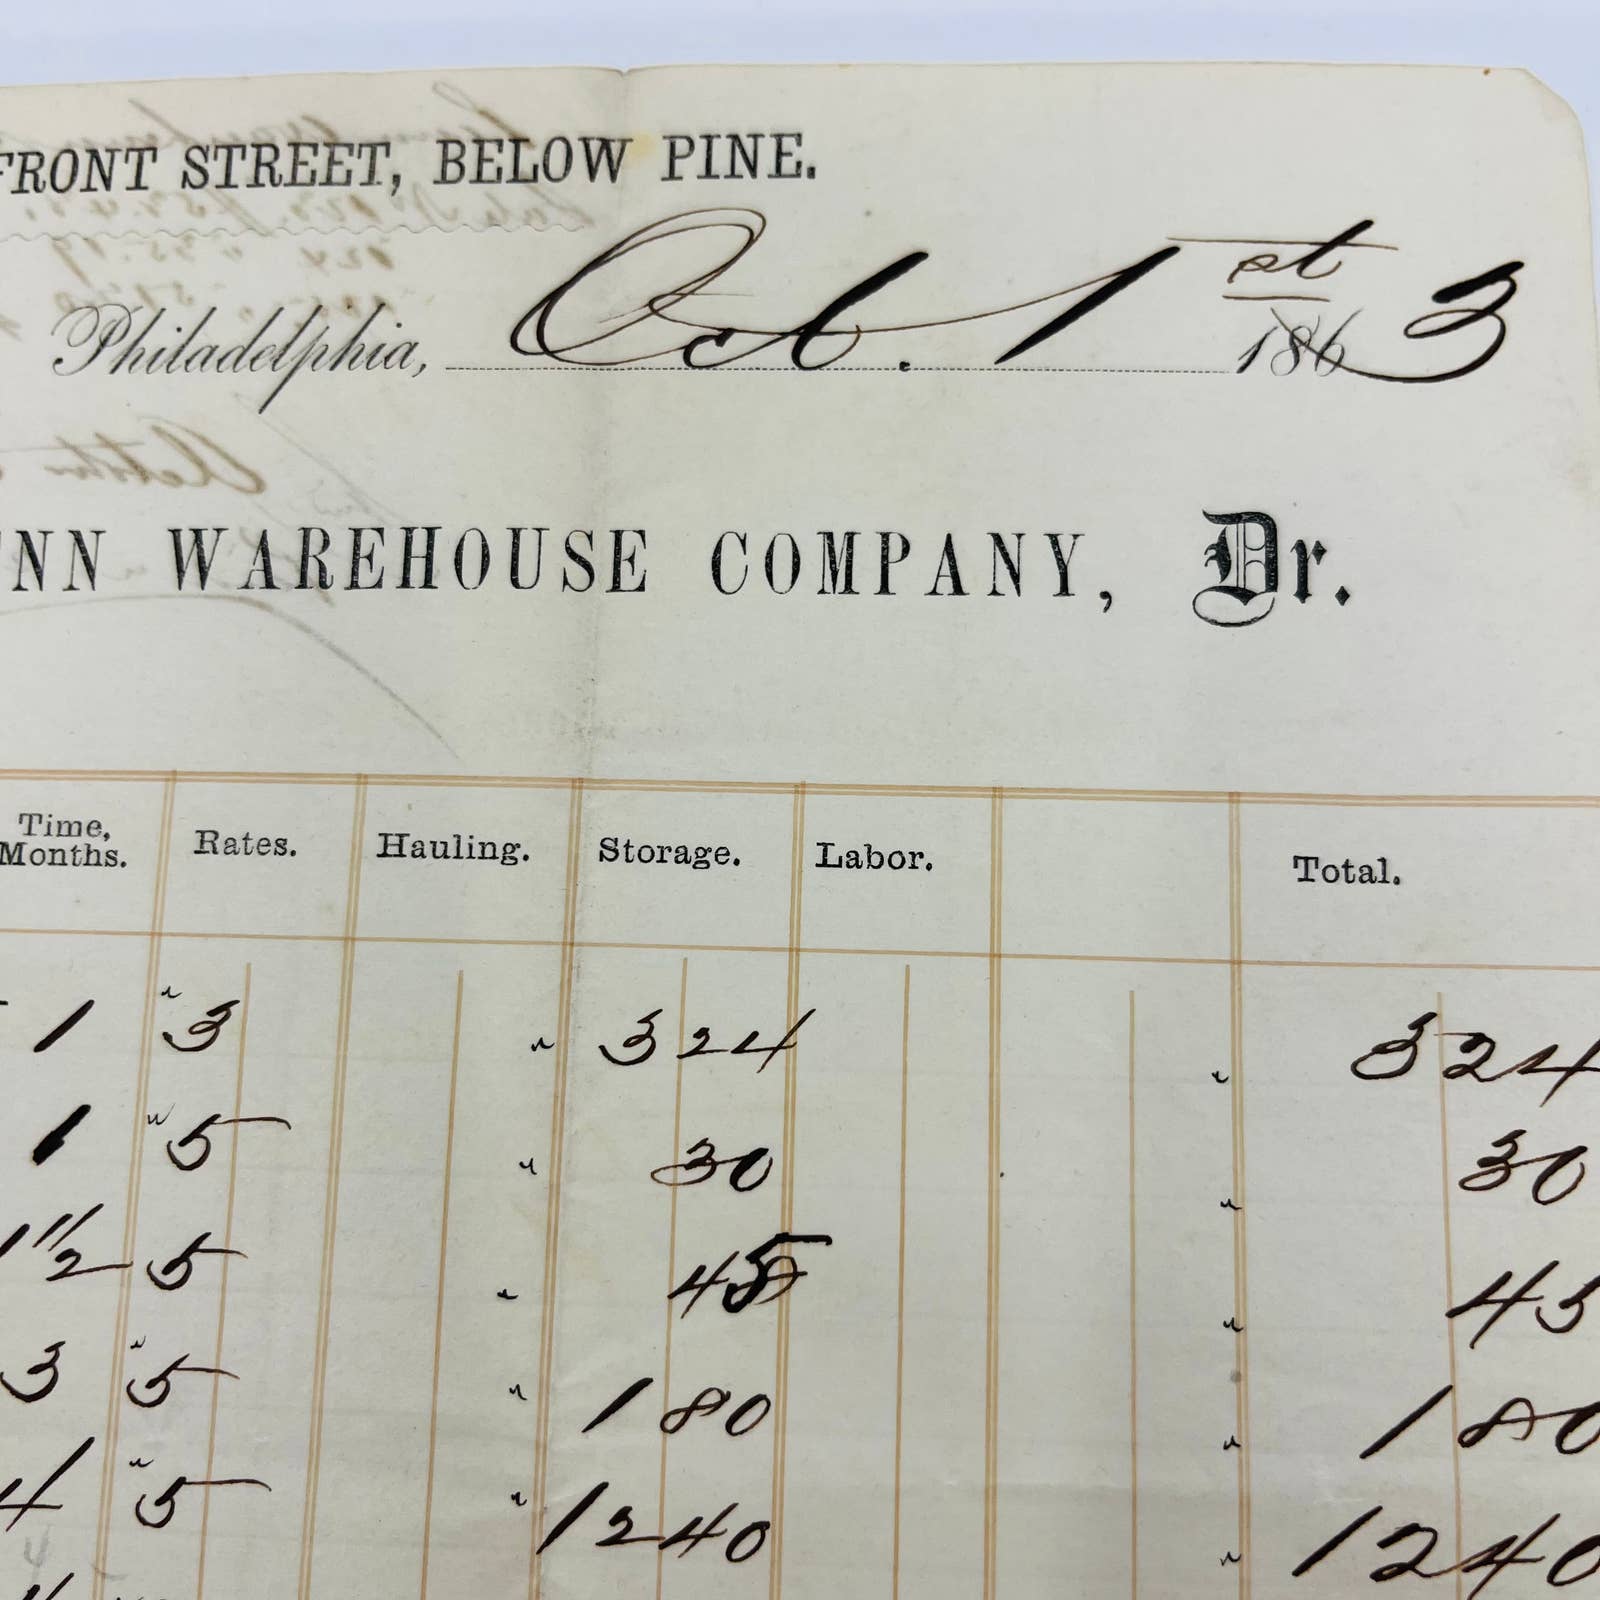 FRONT STREET, BELOW PINE.
Philadelphia, Oct. 1st 1863
NN WAREHOUSE COMPANY, Dr.
Time, Months. Rates. Hauling. Storage. Labor. Total.
1 " 3 " 3 24 " 3 24
1 " 5 " 30 " 30
1 1/2 5 " 45 " 45
3 " 5 " 1 80 " 1 80
4 " 5 " 12 40 " 12 40